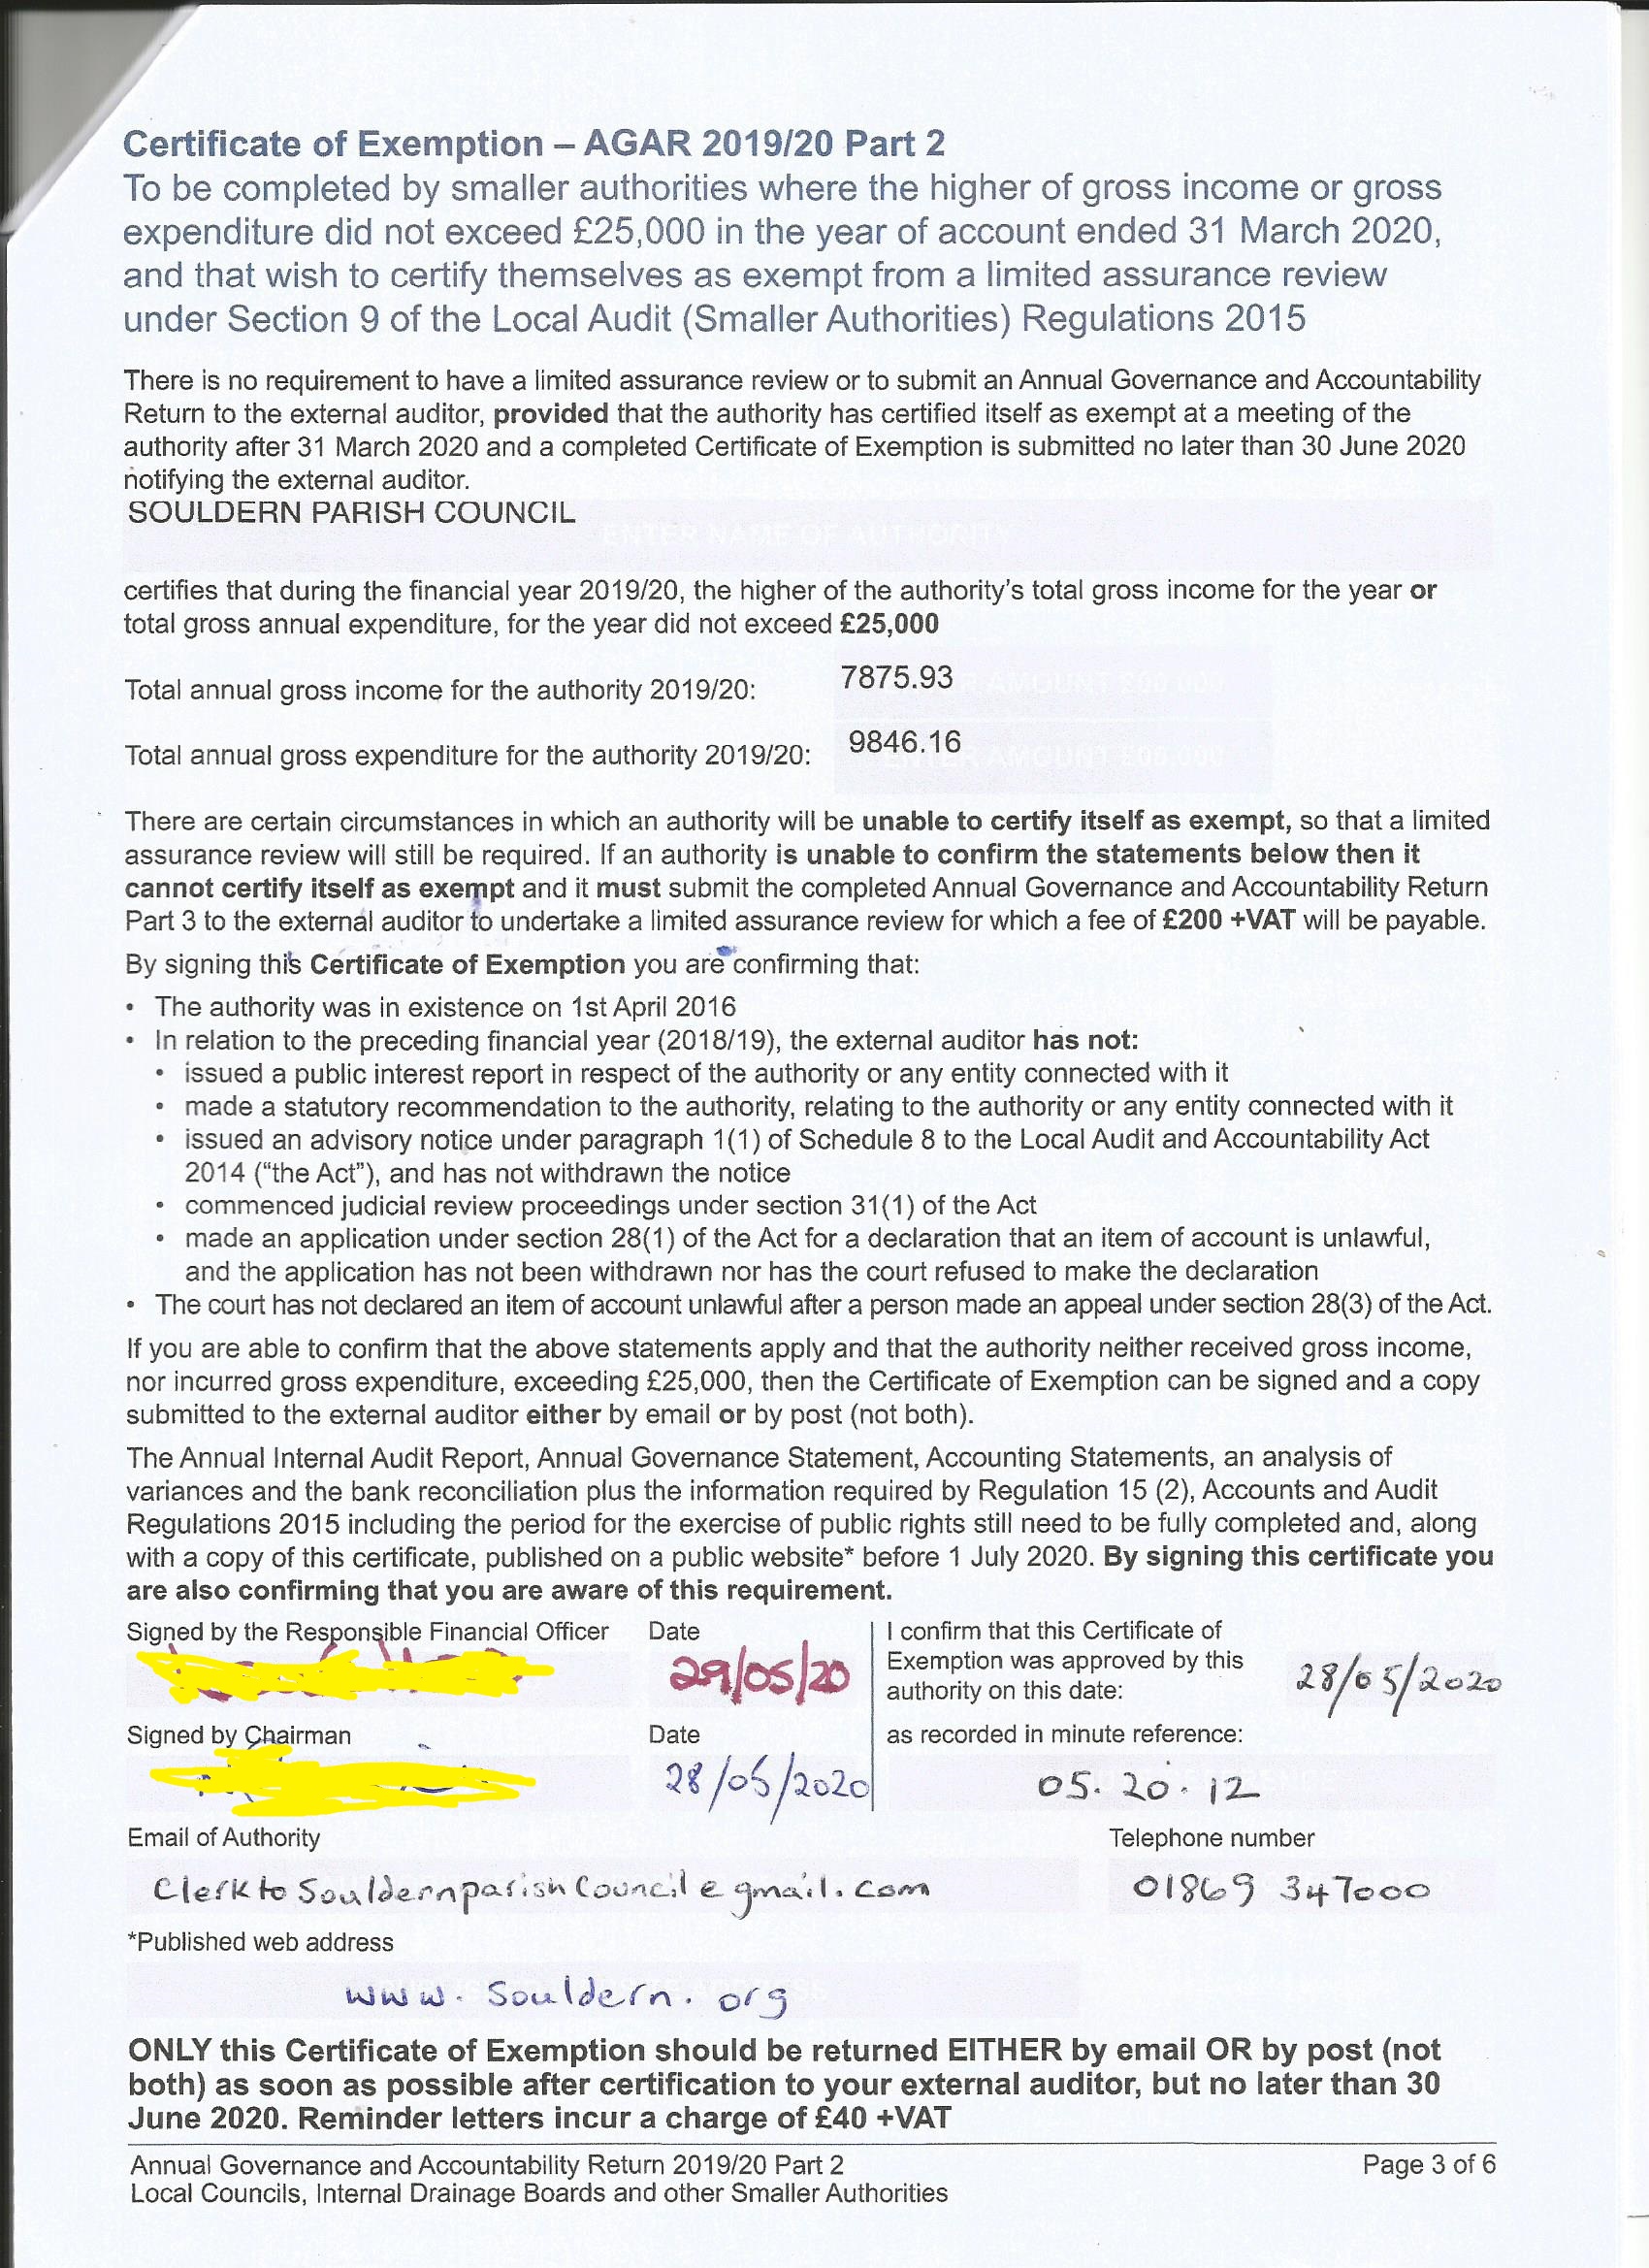 Certificate of Exemption – AGAR 2019/20 Part 2
To be completed by smaller authorities where the higher of gross income or gross
expenditure did not exceed £25,000 in the year of account ended 31 March 2020,
and that wish to certify themselves as exempt from a limited assurance review
under Section 9 of the Local Audit (Smaller Authorities) Regulations 2015
There is no requirement to have a limited assurance review or to submit an Annual Governance and Accountability
Return to the external auditor, provided that the authority has certified itself as exempt at a meeting of the
authority after 31 March 2020 and a completed Certificate of Exemption is submitted no later than 30 June 2020
notifying the external auditor.
SOULDERN PARISH COUNCIL
ENTER NAME OF AUTHORITY
certifies that during the financial year 2019/20, the higher of the authority's total gross income for the year or
total gross annual expenditure, for the year did not exceed £25,000
Total annual gross income for the authority 2019/20: 7875.93 AMOUNT £00,000
Total annual gross expenditure for the authority 2019/20: 9846.16 ENTER AMOUNT £00,000
There are certain circumstances in which an authority will be unable to certify itself as exempt, so that a limited
assurance review will still be required. If an authority is unable to confirm the statements below then it
cannot certify itself as exempt and it must submit the completed Annual Governance and Accountability Return
Part 3 to the external auditor to undertake a limited assurance review for which a fee of £200 +VAT will be payable.
By signing this Certificate of Exemption you are confirming that:
• The authority was in existence on 1st April 2016
• In relation to the preceding financial year (2018/19), the external auditor has not:
• issued a public interest report in respect of the authority or any entity connected with it
• made a statutory recommendation to the authority, relating to the authority or any entity connected with it
• issued an advisory notice under paragraph 1(1) of Schedule 8 to the Local Audit and Accountability Act
2014 ("the Act"), and has not withdrawn the notice
• commenced judicial review proceedings under section 31(1) of the Act
• made an application under section 28(1) of the Act for a declaration that an item of account is unlawful,
and the application has not been withdrawn nor has the court refused to make the declaration
• The court has not declared an item of account unlawful after a person made an appeal under section 28(3) of the Act.
If you are able to confirm that the above statements apply and that the authority neither received gross income,
nor incurred gross expenditure, exceeding £25,000, then the Certificate of Exemption can be signed and a copy
submitted to the external auditor either by email or by post (not both).
The Annual Internal Audit Report, Annual Governance Statement, Accounting Statements, an analysis of
variances and the bank reconciliation plus the information required by Regulation 15 (2), Accounts and Audit
Regulations 2015 including the period for the exercise of public rights still need to be fully completed and, along
with a copy of this certificate, published on a public website* before 1 July 2020. By signing this certificate you
are also confirming that you are aware of this requirement.
Signed by the Responsible Financial Officer Date
29/05/20
I confirm that this Certificate of
Exemption was approved by this
authority on this date:
28/05/2020
Signed by Chairman Date
28/05/2020
as recorded in minute reference:
05.20.12
Email of Authority Telephone number
ClerktoSouldernparishCouncil@gmail.com 01869 347000
*Published web address
www.Souldern.org
ONLY this Certificate of Exemption should be returned EITHER by email OR by post (not
both) as soon as possible after certification to your external auditor, but no later than 30
June 2020. Reminder letters incur a charge of £40 +VAT
Annual Governance and Accountability Return 2019/20 Part 2 Page 3 of 6
Local Councils, Internal Drainage Boards and other Smaller Authorities